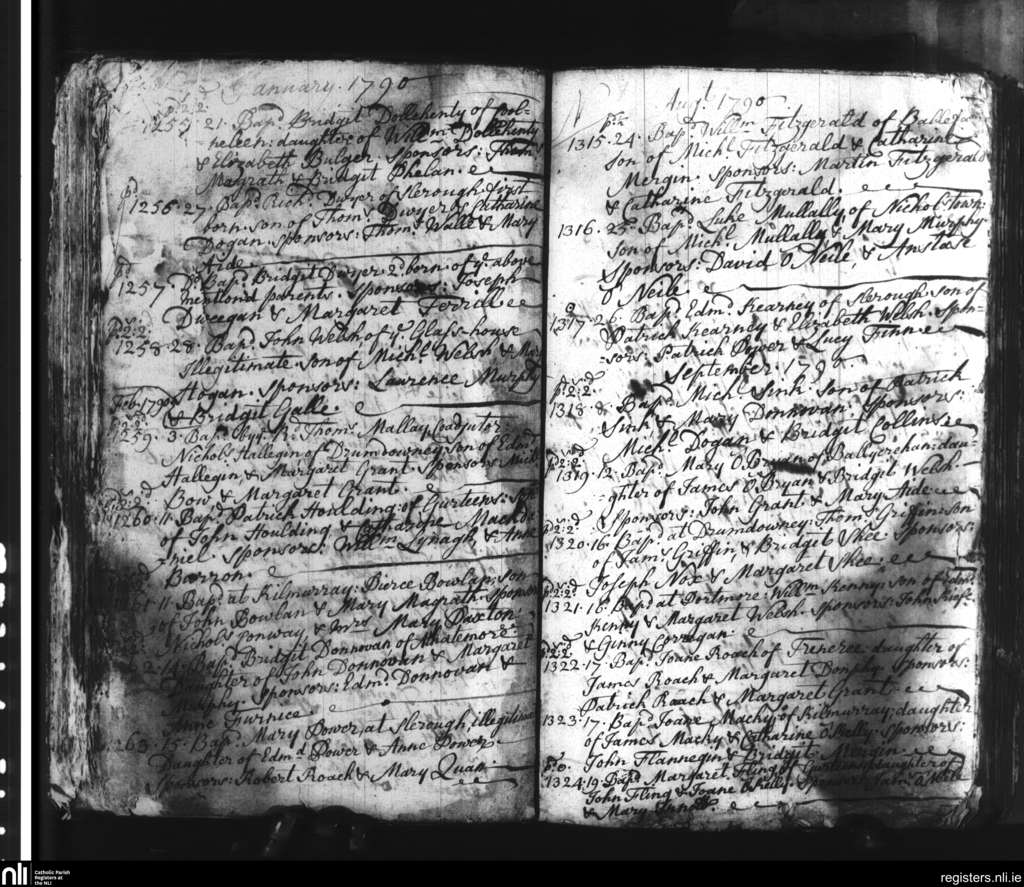 January. 1790
pd. 2:2
1255. 21. Bapd. Bridgit Dollehenty of Cool-
-heleen: daughter of Willm. Dollehenty
& Elizabeth Bulger. Sponsors: Thoms.
Magrath & Bridgit Phelan.
pd.
1256. 27. Bapd. Richd. Dwyer of Slerough. first
born. son of Thoms. Dwyer & Catharine
Dogan. Sponsors: Thoms. Walle & Mary
Aide
pd.
1257. Do. Bapd. Bridgit Dwyer 2d. born. of ye. above
mentiond parents. Sponsors: Joseph
Dweegan & Margaret Ferral
1258. 28. Bapd. John Welsh of ye. Glass-house
illegitimate son of Michl. Welsh &
Hogan. Sponsors: Lawrence Murphy
Feb: 1790
& Bridgit Galle.
1259. 3. Bapd. by Thoms. Mallay, Coadjutor:
Nichols. Hallegin of Drumdowney son of Edmd.
Hallegin, & Margaret Grant. Sponsors
Bow & Margaret Grant.
1260. 11. Bapd. Patrick Houlding of Gurteens: son
of John Houlding & Catharine
Sponsors: Willm. Lynagh, & Anne
Barron.
11. Bapd. at Kilmurray: Pierce Bowlan, son
of John Bowlan & Mary Magrath. Sponsors
Nichols. Conway, & Mrs. Mary Daxton.
14. Bapd. Bridgit Donnovan of
Daughter of John Donnovan & Margaret
Murphy. Sponsors: Edmd. Donnovan &
Anne Furnice
1263. 15. Bapd. Mary Power, at Slerough, illegitimate
Daughter of Edmd. Power & Anne Power
Sponsors: Robert Roach & Mary Quan
Augt. 1790
1315. 24. Bapd. Willm. Fitzgerald of
son of Michl. Fitzgerald & Catharine
Mergin. Sponsors: Martin Fitzgerald
& Catharine Fitzgerald.
1316. 25. Bapd. Luke Mullally, of Nichols-Town:
son of Michl. Mullally & Mary Murphy.
Sponsors: David O Neile, & Anstase
O Neile.
1317. 26. Bapd. Edmd. Kearney of Slerough. son of
Patrick Kearney & Elizabeth Welsh. Spon-
-sors: Patrick Power & Lucy Finn
September. 1790
pd. 2:2.
1318. 8. Bapd. Michl. Sink: Son of Patrick
Sink & Mary Donnovan. Sponsors:
Michl. Dogan & Bridgit Collins
1319. 12. Bapd. Mary O'Bryan of Ballycrehan: dau-
-ghter of James O'Bryan & Bridgit Welsh.
& Sponsors: John Grant & Mary Aide
1320. 16. Bapd. at Drumdowney: Thoms. Griffin: son
of Jams. Griffin & Bridgit Skee. Sponsors:
Joseph Nox & Margaret Skee.
1321. 16. Bapd. at Portmore: Willm. Kenny: son of Edmd.
Kenny & Margaret Welsh. Sponsors: John
& Ginny Corregan.
1322. 17. Bapd. Joane Roach of daughter of
James Roach & Margaret Donphy. Sponsors:
Patrick Roach & Margaret Grant
1323. 17. Bapd. Joane Macky of Kilmurray; daughter
of James Macky & Catharine O Kelly. Sponsors:
John Flannegin & Bridgit Mergin.
1324. 19. Bapd. Margaret Fling of Gurteens daughter of
John Fling & Joane Kelly. Sponsors: O Neile
& Mary
nli
Catholic Parish
Registers at
the NLI
registers.nli.ie